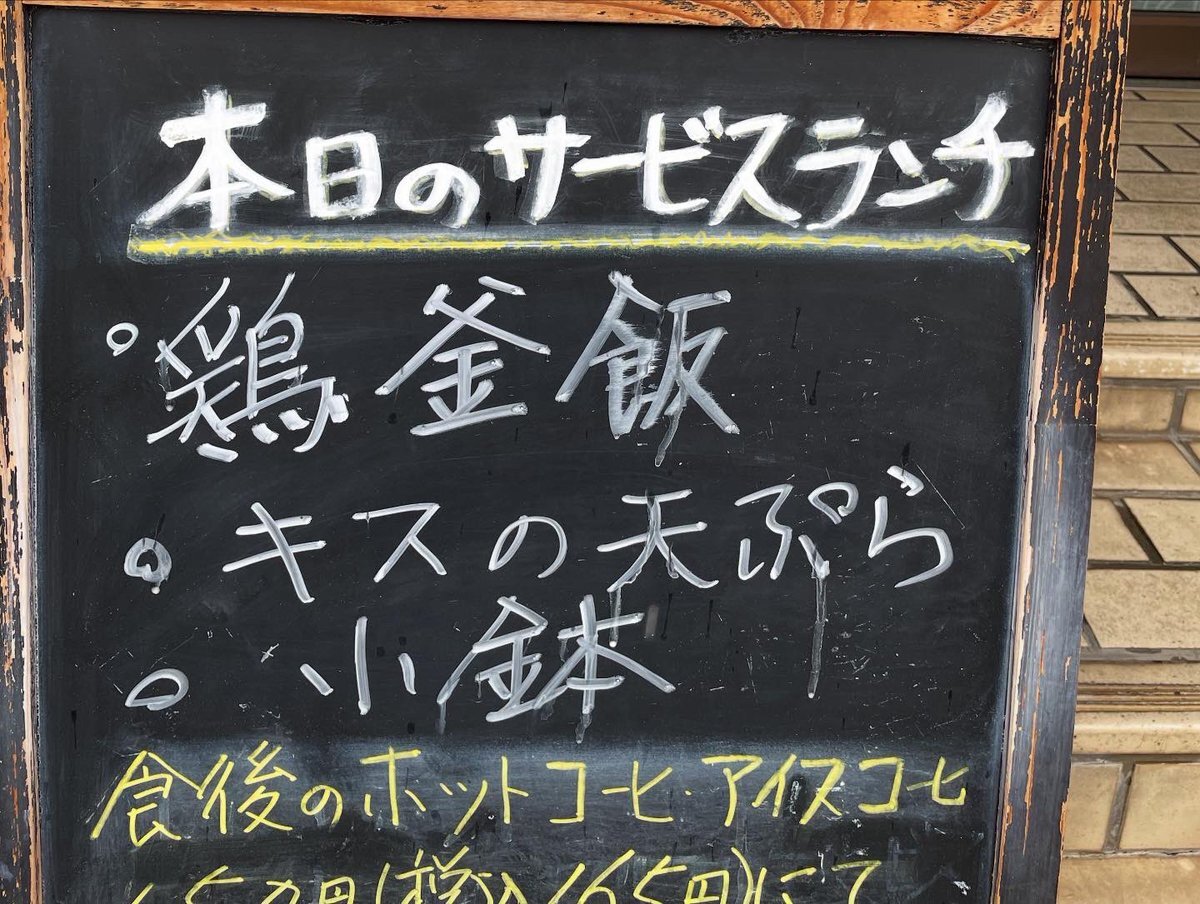 本日のサービスランチ
° 鶏釜飯
° キスの天ぷら
° 小鉢
食後のホットコーヒ・アイスコーヒ
150円(税込165円)にて